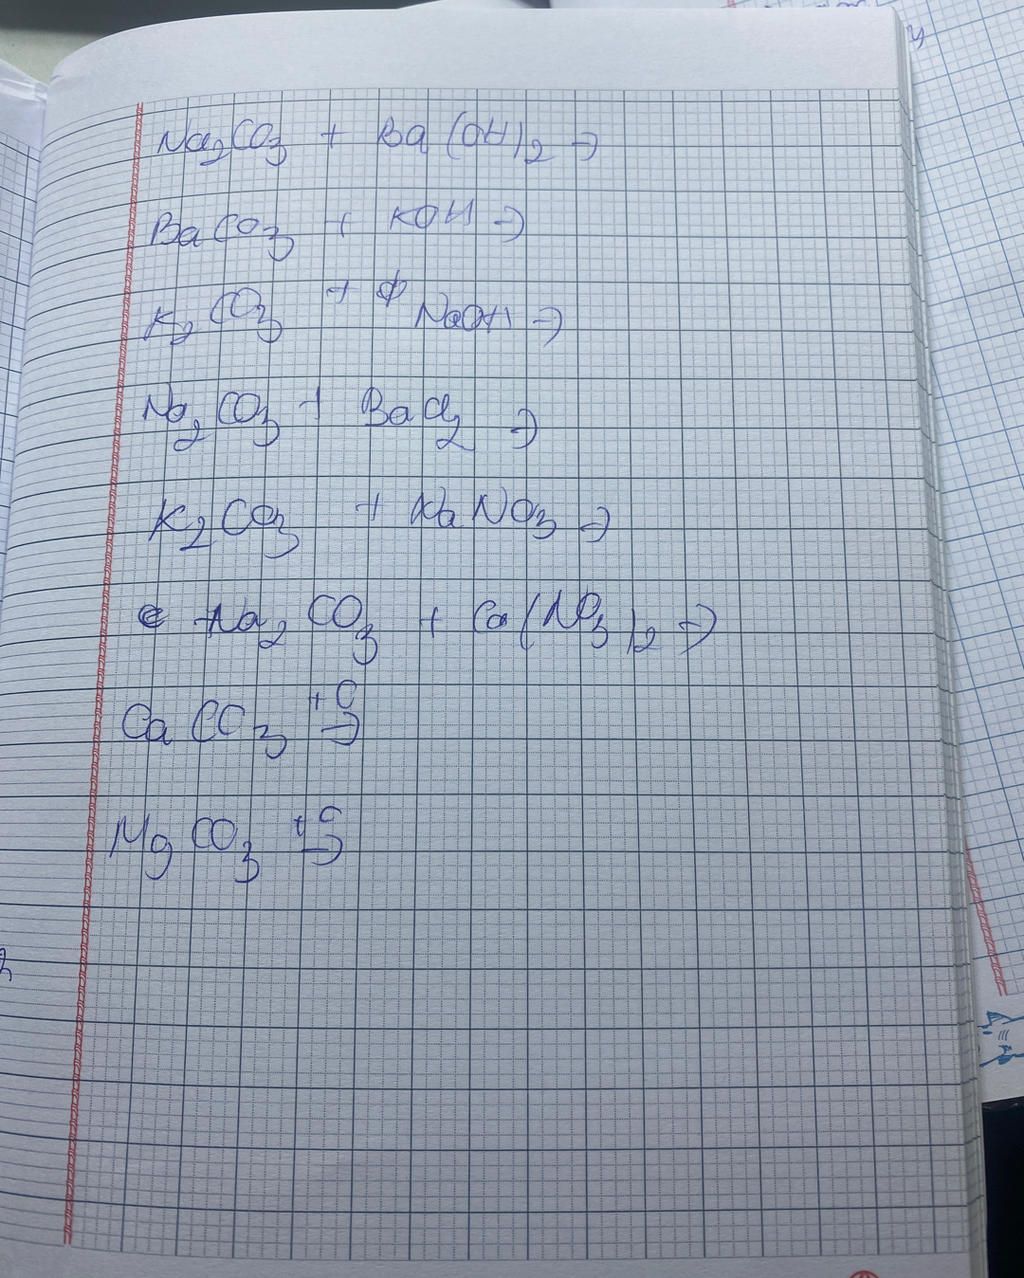 Na₂CO₃ + Ba(OH)₂ →
BaCO₃ + KOH →
K₂CO₃ + NaOH →
Na₂CO₃ + BaCl₂ →
K₂CO₃ + NaNO₃ →
Na₂CO₃ + Ca(NO₃)₂ →
CaCO₃ →
MgCO₃ →